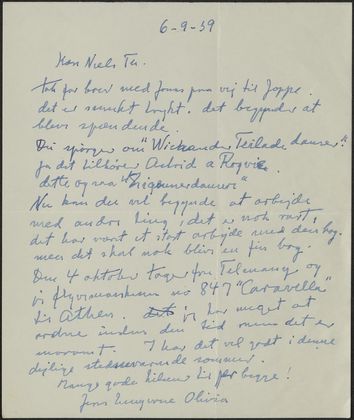 6-9-59
Kære Niels Th.
Tak for brev med Jonas paa vej til Joppe.
det er smukt trykt. det begynder at
blive spændende.
Du spørger om "Wickander Teilade danser"?
ja det tilhører Astrid
dette ogsaa "Zigeunerdanser"
Nu kan du vel begynde at arbejde
med andre ting, det er nok rart,
det har været et stort arbejde med den bog.
men det skal nok blive en fin bog.
Den 4 oktober tager fru Telmanyi og
jeg flyvemaskinen no 847 "Caravella"
til Athen. jeg har meget at
ordne inden den tid men det er
morsomt. I har det vel godt i denne
dejlige sommer.
Mange gode hilsner til jer begge!
Jeres Olivia